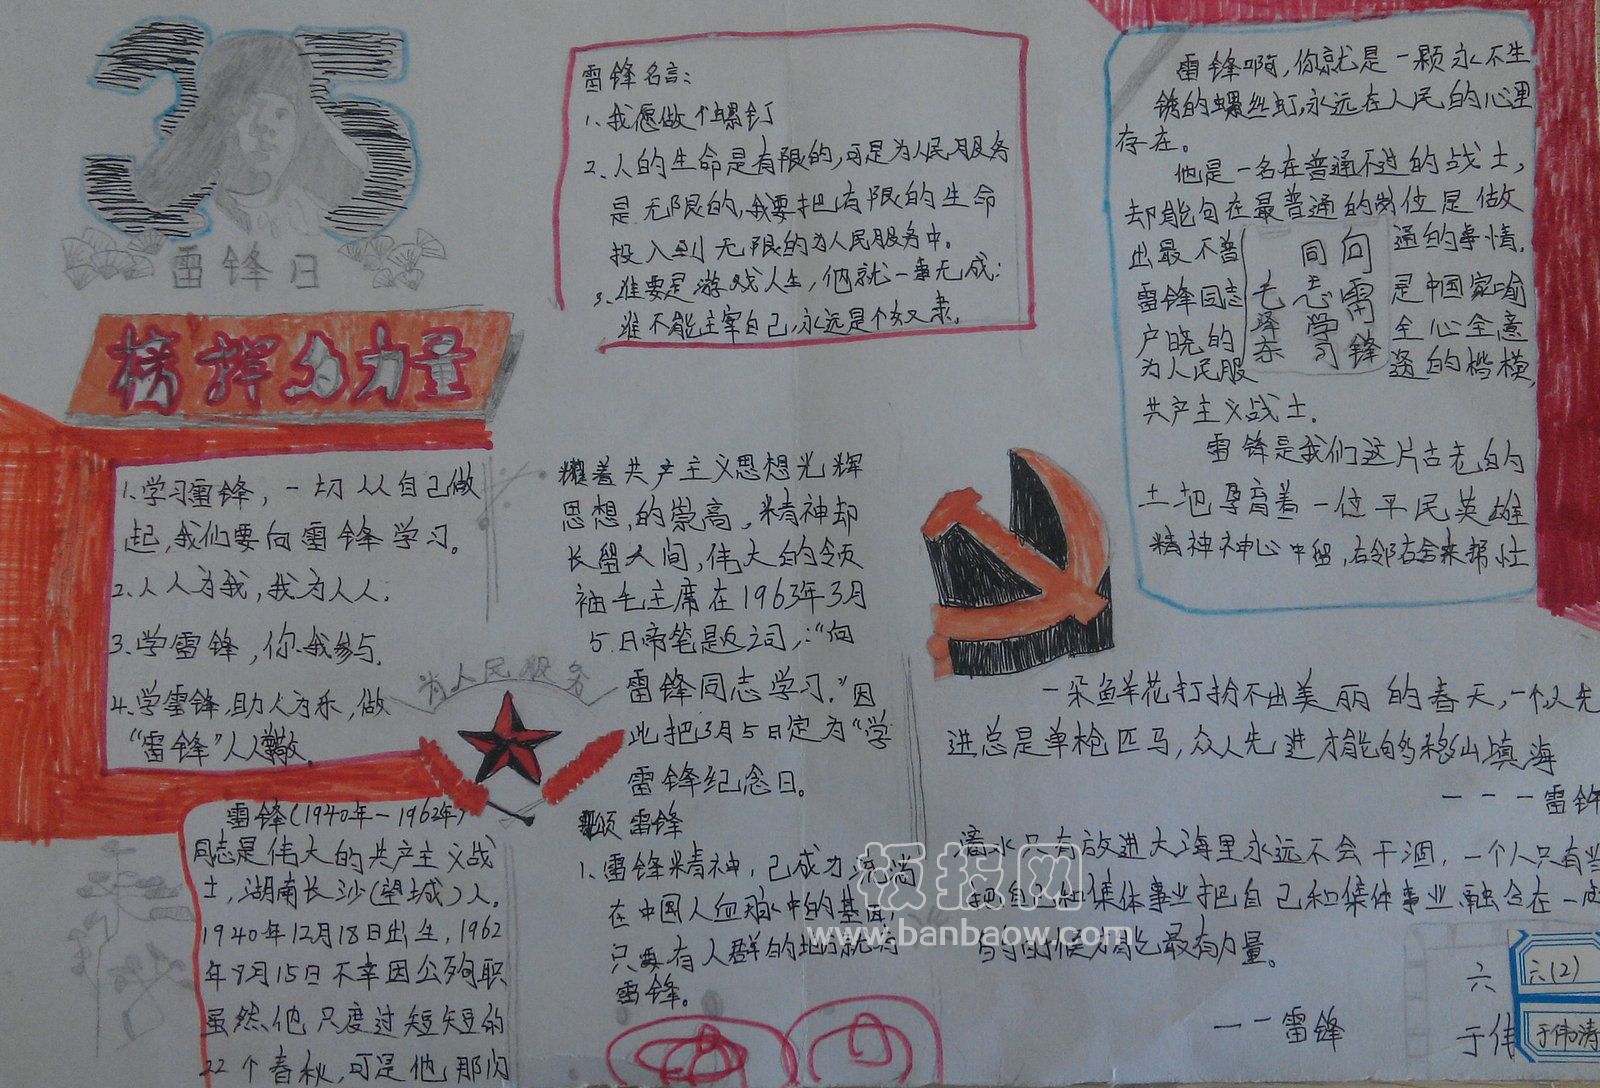 35
雷锋日
榜挥的力量
1.学习雷锋，一切从自己做
起，我们要向雷锋学习。
2.人人为我，我为人人；
3.学雷锋，你我参与，
4.学雷锋，助人为乐，做
“雷锋”人人敬。
雷锋（1940年—1962年）
同志是伟大的共产主义战
士，湖南长沙（望城）人。
1940年12月18日出生，1962
年8月15日不幸因公殉职
虽然他只度过短短的
22个春秋，可是他那闪
雷锋名言：
1、我愿做个螺钉
2、人的生命是有限的，可是为人民服务
是无限的，我要把有限的生命
投入到无限的为人民服务中。
3、谁要是游戏人生，他就一事无成；
谁不能主宰自己，永远是个奴隶。
耀着共产主义思想光辉
思想，的崇高，精神却
长留人间，伟大的领
袖毛主席在1963年3月
5日帝笔题之词，：“向
雷锋同志学习，”因
此把3月5日定为“学
雷锋纪念日。
为人民服务
颂雷锋
1、雷锋精神，已成为流淌
在中国人血脉中的基因，
只要有人群的地方就有
雷锋。
雷锋啊，你就是一颗永不生
锈的螺丝虹，永远在人民的心里
存在。
他是一名在普通不过的战士，
却能句在最普通的岗位是做
出最不普通的事情，
雷锋同志是中国家喻
户晓的全心全意
为人民服务的楷模，
共产主义战士。
向雷锋
同志学习
毛泽东
雷锋是我们这片古老的
土地孕育着一位平民英雄
精神神心中留，右邻右舍来帮忙
一朵鱼羊花打扮不出美丽的春天，一个人先
进总是单枪匹马，众人先进才能的够移山填海
———雷锋
滴水只有放进大海里永远不会干涸，一个人只有当
把自己和集体事业把自己和集体事业融合在一
的时候才能最有力量。
——雷锋
六
六(2)
于伟
于伟涛
板报网
www.banbaow.com